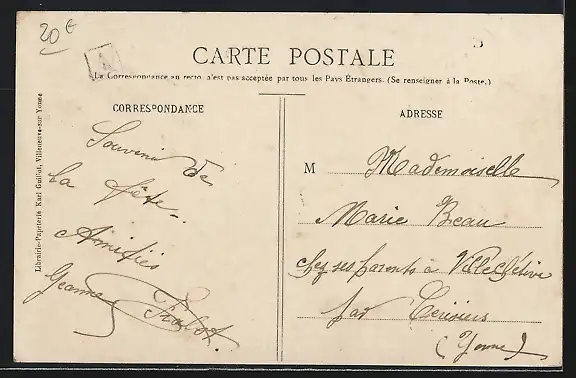 20 €
A
CARTE POSTALE
La Correspondance au recto n'est pas acceptée par tous les Pays Étrangers. (Se renseigner à la Poste.)
CORRESPONDANCE
Souvenir de
la fête.
Amitiés
Jeanne
ADRESSE
M Mademoiselle
Marie Beau
chez ses parents à
par Cerisiers
(Yonne)
Librairie-Papeterie Karl Guillot, Villeneuve-sur Yonne